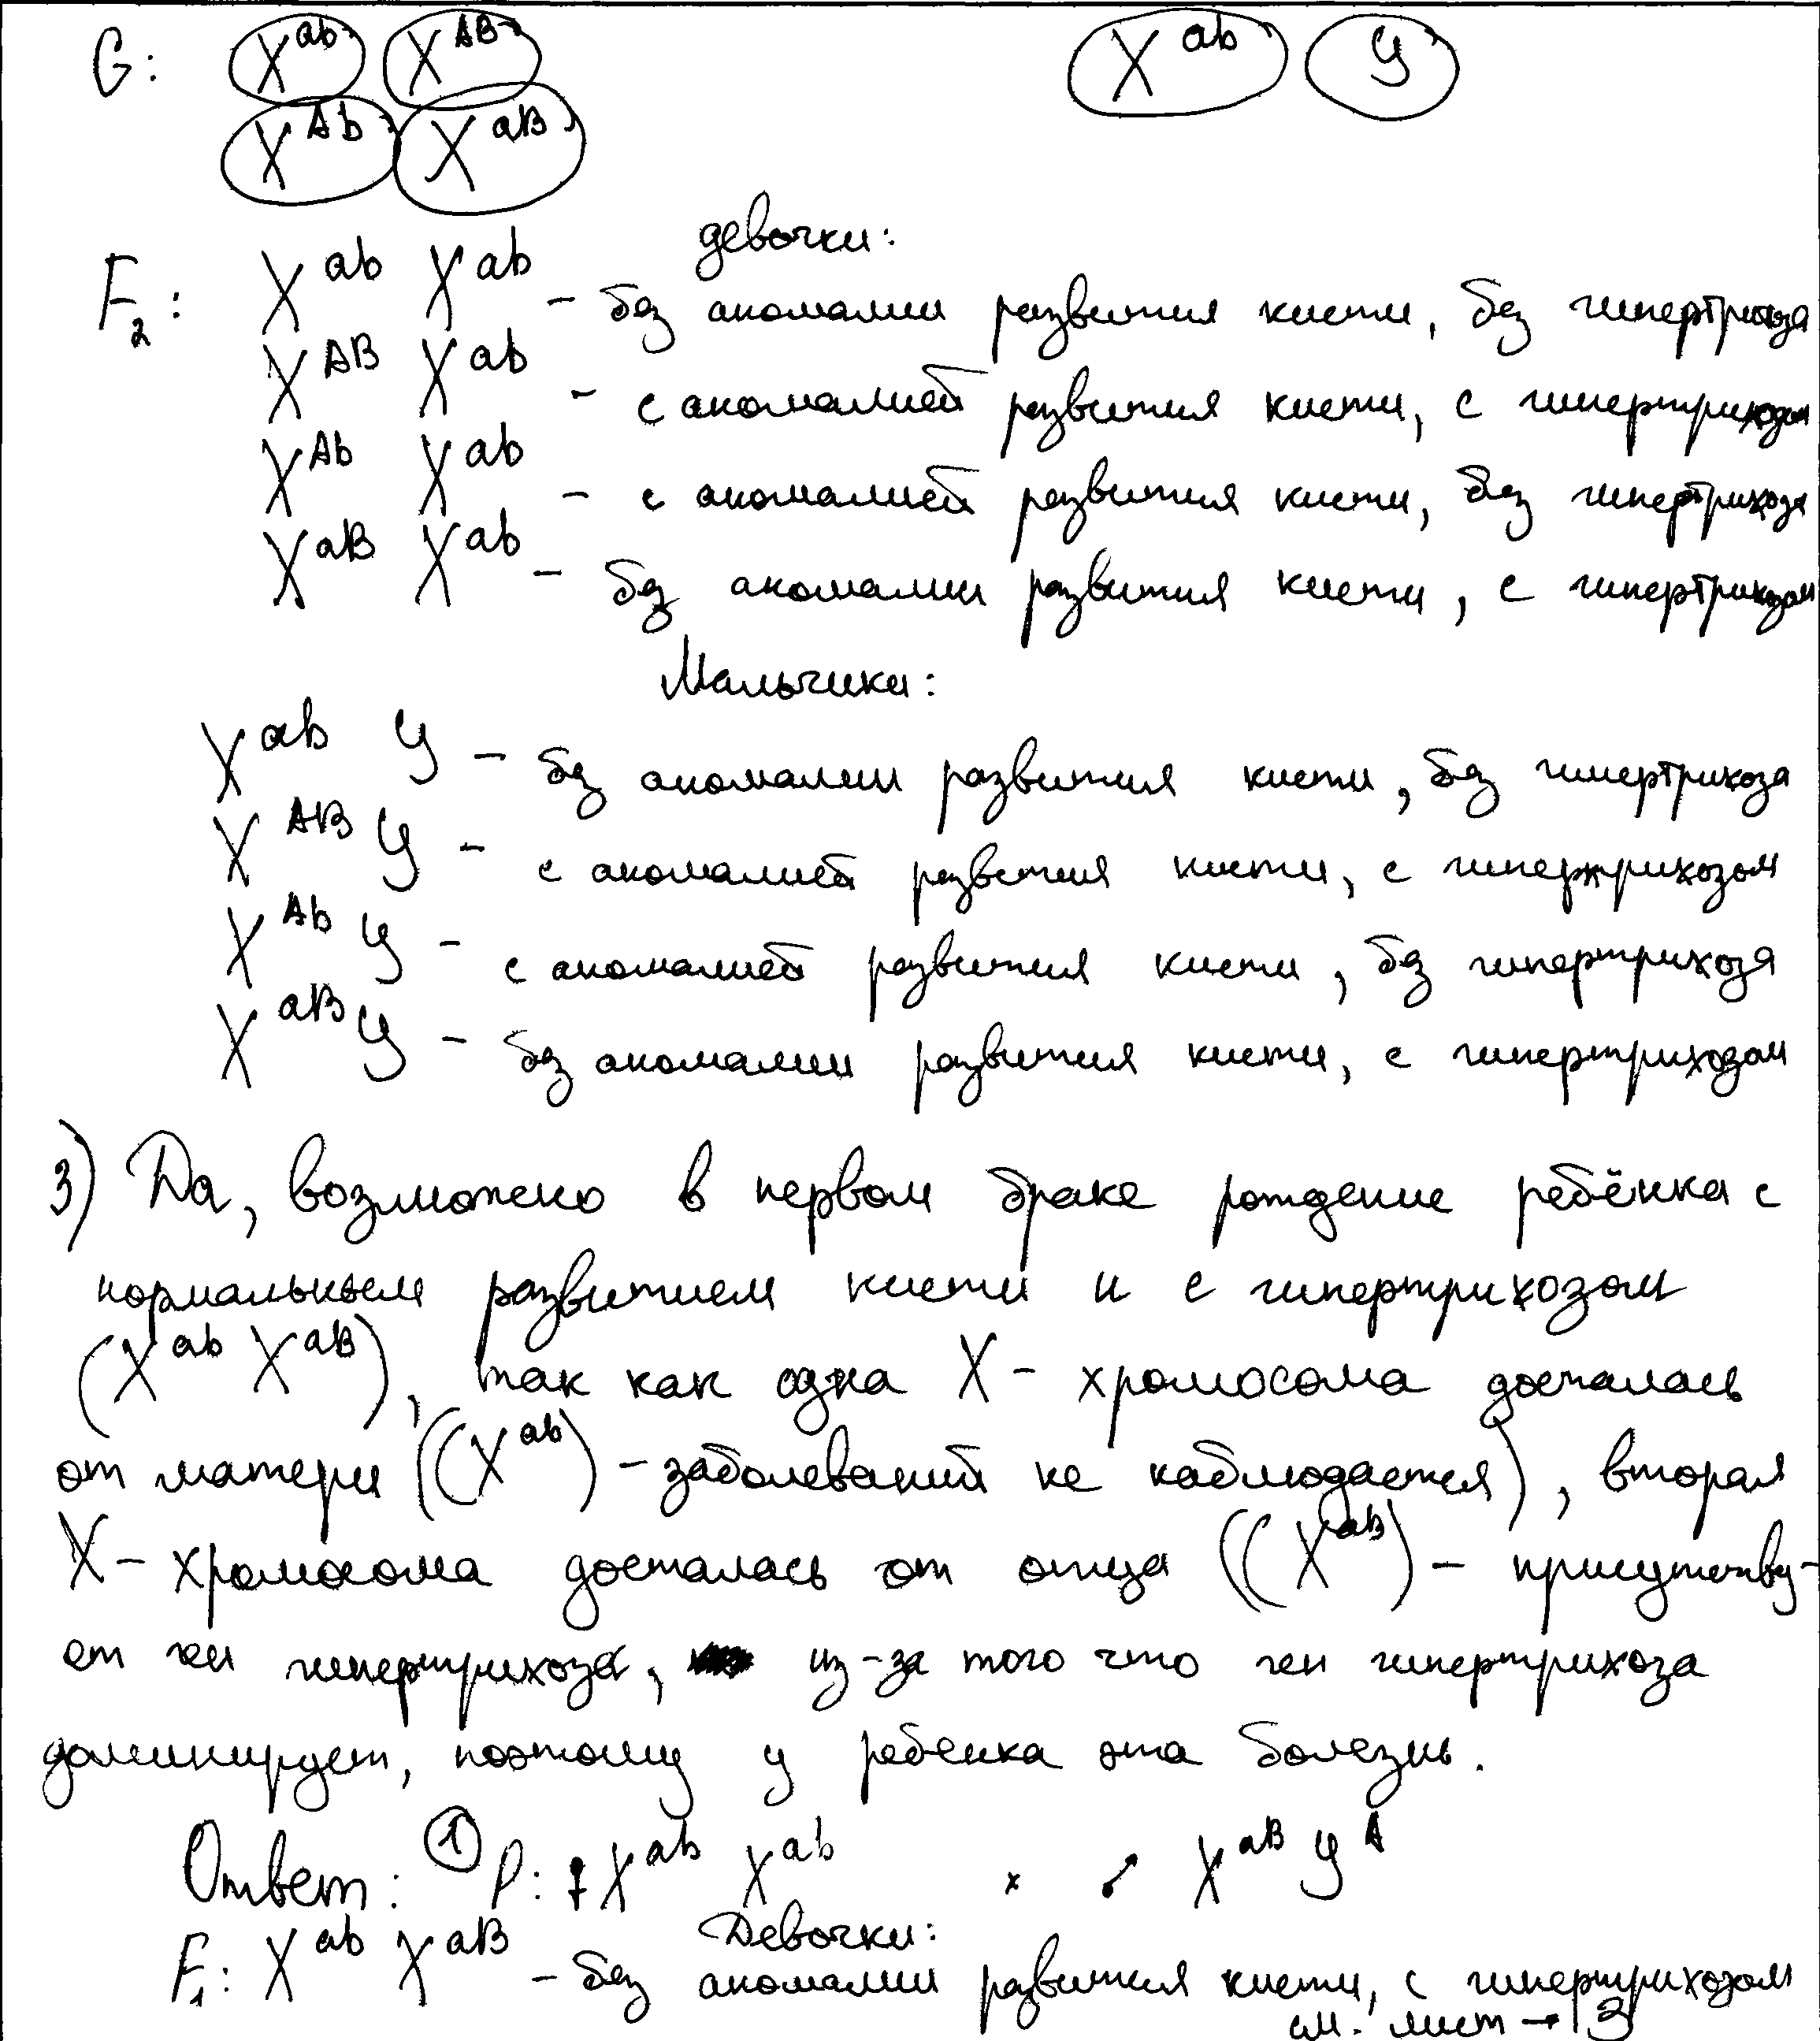 G: X^ab X^AB X^ab У
X^Ab X^aB
девочки:
F₂: X^ab X^ab – без аномалии развития кисти, без гипертрихоза
X^AB X^ab – с аномалией развития кисти, с гипертрихозом
X^Ab X^ab – с аномалией развития кисти, без гипертрихоза
X^aB X^ab – без аномалии развития кисти, с гипертрихозом
Мальчики:
X^ab У – без аномалии развития кисти, без гипертрихоза
X^AB У – с аномалией развития кисти, с гипертрихозом
X^Ab У – с аномалией развития кисти, без гипертрихоза
X^aB У – без аномалии развития кисти, с гипертрихозом
3) Да, возможно в первом браке рождение ребёнка с
нормальным развитием кисти и с гипертрихозом
(X^ab X^aB), так как одна X – хромосома досталась
от матери ((X^ab) – заболеваний не наблюдается), вторая
X – хромосома досталась от отца ((X^ab) – присутству-
ет ген гипертрихоза, из-за того что ген гипертрихоза
доминирует, поэтому у ребенка эта болезнь.
Ответ: ① P: ♀ X^ab X^ab × ♂ X^aB У^A
Девочки:
F₁: X^ab X^aB – без аномалии развития кисти, с гипертрихозом
см. лист → 3